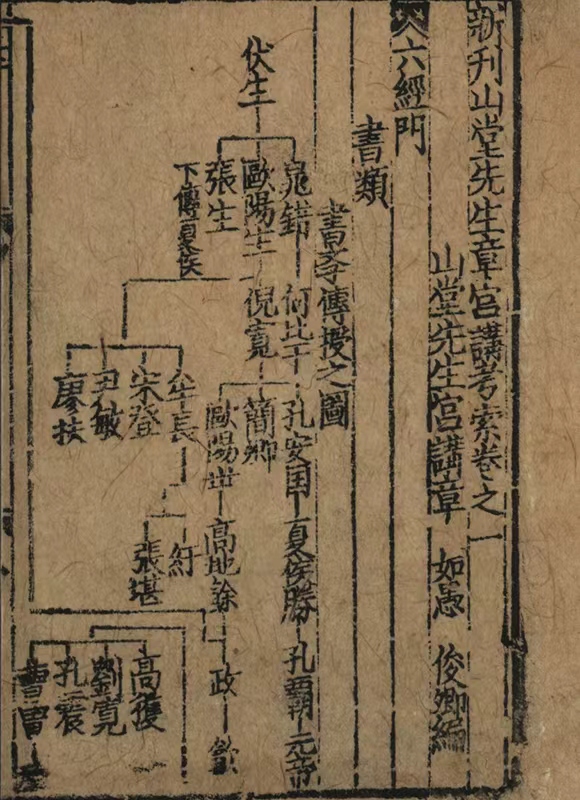 新刊山堂先生章宮講考索卷之一
山堂先生宮講章 如愚 俊卿編
六經門
書類
書李傳授之圖
伏生
晁錯 何比干 孔安国 夏侯勝 孔霸 元帝
歐陽生 倪寬 簡卿
歐陽世 高地餘 政 歙
張生
下傳夏侯
牟長 紆
張堪
宋登
尹敏
廖扶
高獲
劉寬
孔
曹曾